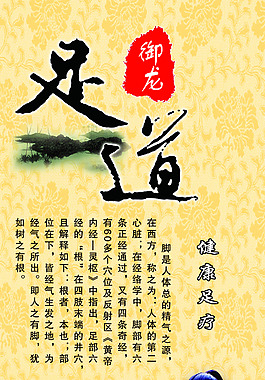 足道
御龙
健康足疗
脚是人体总的精气之源，
在西方，称之为：人体的第二
心脏；在经络学中，脚部有六
条正经通过，又有四条奇经，
有60多个穴位及反射区《黄帝
内经—灵枢》中指出，足部六
经的“根”在四肢末端的井穴，
且解释如下：根者，本也；部
位在下，皆经气生发之地，为
经气之所出。即人之有脚，犹
如树之有根。